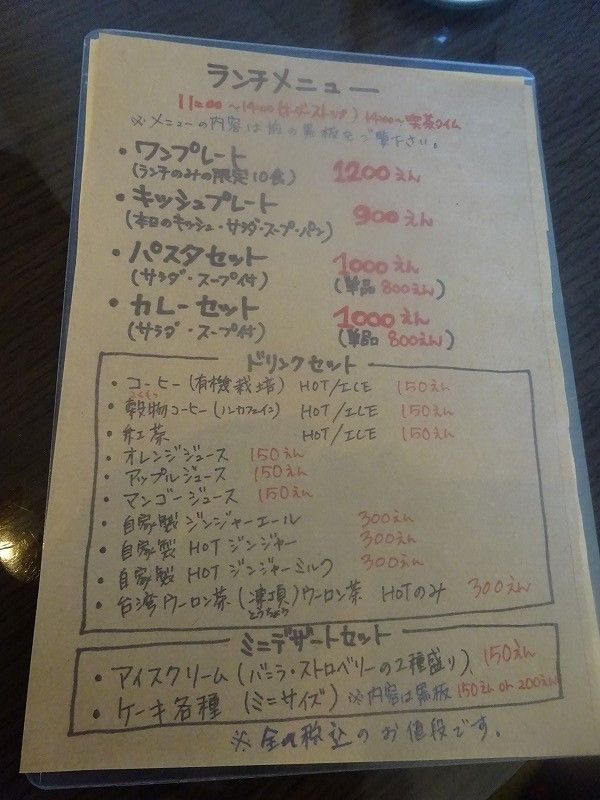 ランチメニュー
11:00～14:00(オーダーストップ) 14:00～喫茶タイム
※メニューの内容は前の黒板をご覧下さい。
・ワンプレート 1200えん
(ランチのみの限定10食)
・キッシュプレート 900えん
(本日のキッシュ・サラダ・スープ・パン)
・パスタセット 1000えん
(サラダ・スープ付) (単品 800えん)
・カレーセット 1000えん
(サラダ・スープ付) (単品 800えん)
ドリンクセット
・コーヒー(有機栽培) HOT/ICE 150えん
・穀物コーヒー(ノンカフェイン) HOT/ICE 150えん
・紅茶 HOT/ICE 150えん
・オレンジジュース 150えん
・アップルジュース 150えん
・マンゴージュース 150えん
・自家製ジンジャーエール 300えん
・自家製 HOT ジンジャー 300えん
・自家製 HOT ジンジャーミルク 300えん
・台湾ウーロン茶(凍頂)ウーロン茶 HOTのみ 300えん
とうちょう
ミニデザートセット
・アイスクリーム(バニラ・ストロベリーの2種盛り) 150えん
・ケーキ各種(ミニサイズ) ※内容は黒板 150えん or 200えん
※全て税込のお値段です。